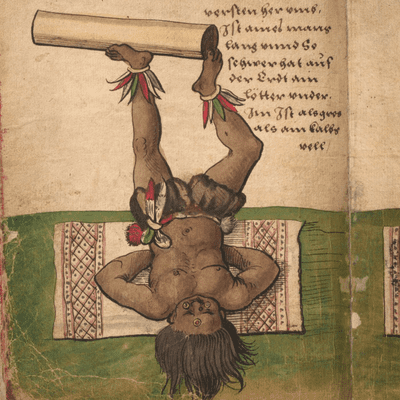 versten her umb.
Ist aines mans
lang vnnd so
schwer hat auf
der Erdt ain
lötter vnder.
Im Ist als gros
als am kalbs
vell